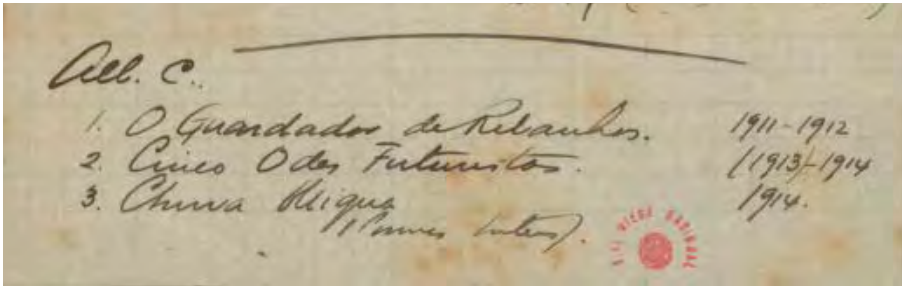 Alb. C.
1. O Guardador de Rebanhos. 1911-1912
2. Cinco Odes Futuristas. (1913)-1914
3. Chuva Obliqua 1914.
(Poemas Inters).